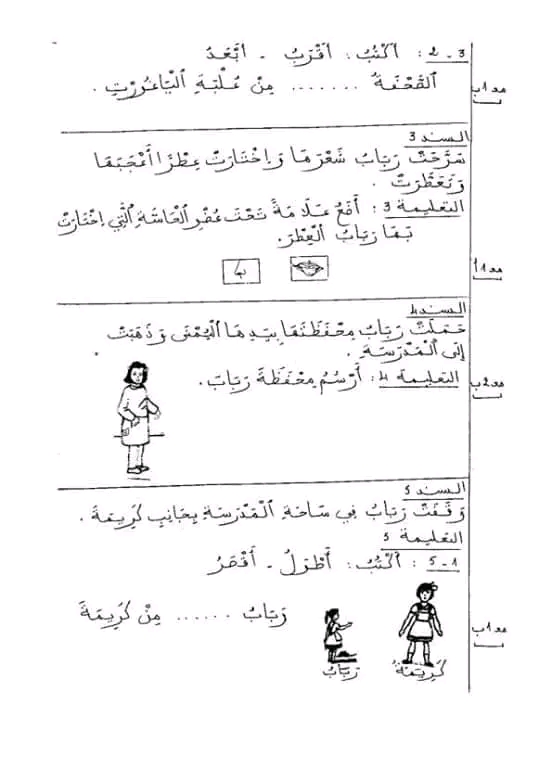 3 - 2 : أَكْتُبُ : أَقْرَبُ - أَبْعَدُ
القِحْفَةُ ....... مِنْ عُلْبَةِ الْيَاغُورْتِ .
مع 1ب
السند 3
سَرَّحَتْ رَبَابُ شَعْرَهَا وَاِخْتَارَتْ عِطْرًا أَعْجَبَهَا
وَتَعَطَّرَتْ .
التعليمة 3 : أَضَعُ عَلَامَةً تَحْتَ عُضْوِ الْحَاسَّةِ الَّتِي اِخْتَارَتْ
بِهَا رَبَابُ الْعِطْرَ.
مع 1أ
السند 4
حَمَلَتْ رَبَابُ مِحْفَظَتَهَا بِيَدِهَا الْيُمْنَى وَذَهَبَتْ
إِلَى الْمَدْرَسَةِ .
التعليمة 4 : أَرْسُمُ مِحْفَظَةَ رَبَابَ .
مع 2ب
السند 5
وَقَفَتْ رَبَابُ فِي سَاحَةِ الْمَدْرَسَةِ بِجَانِبِ كَرِيمَةَ .
التعليمة 5
5 - 1 : أَكْتُبُ : أَطْوَلُ - أَقْصَرُ
رَبَابُ ...... مِنْ كَرِيمَةَ
مع 1ب
كَرِيمَةُ رَبَابُ